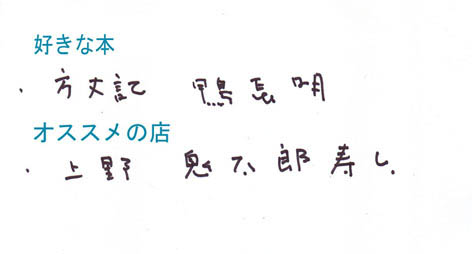 好きな本
・方丈記 鴨長明
オススメの店
・上野 魚太郎寿し